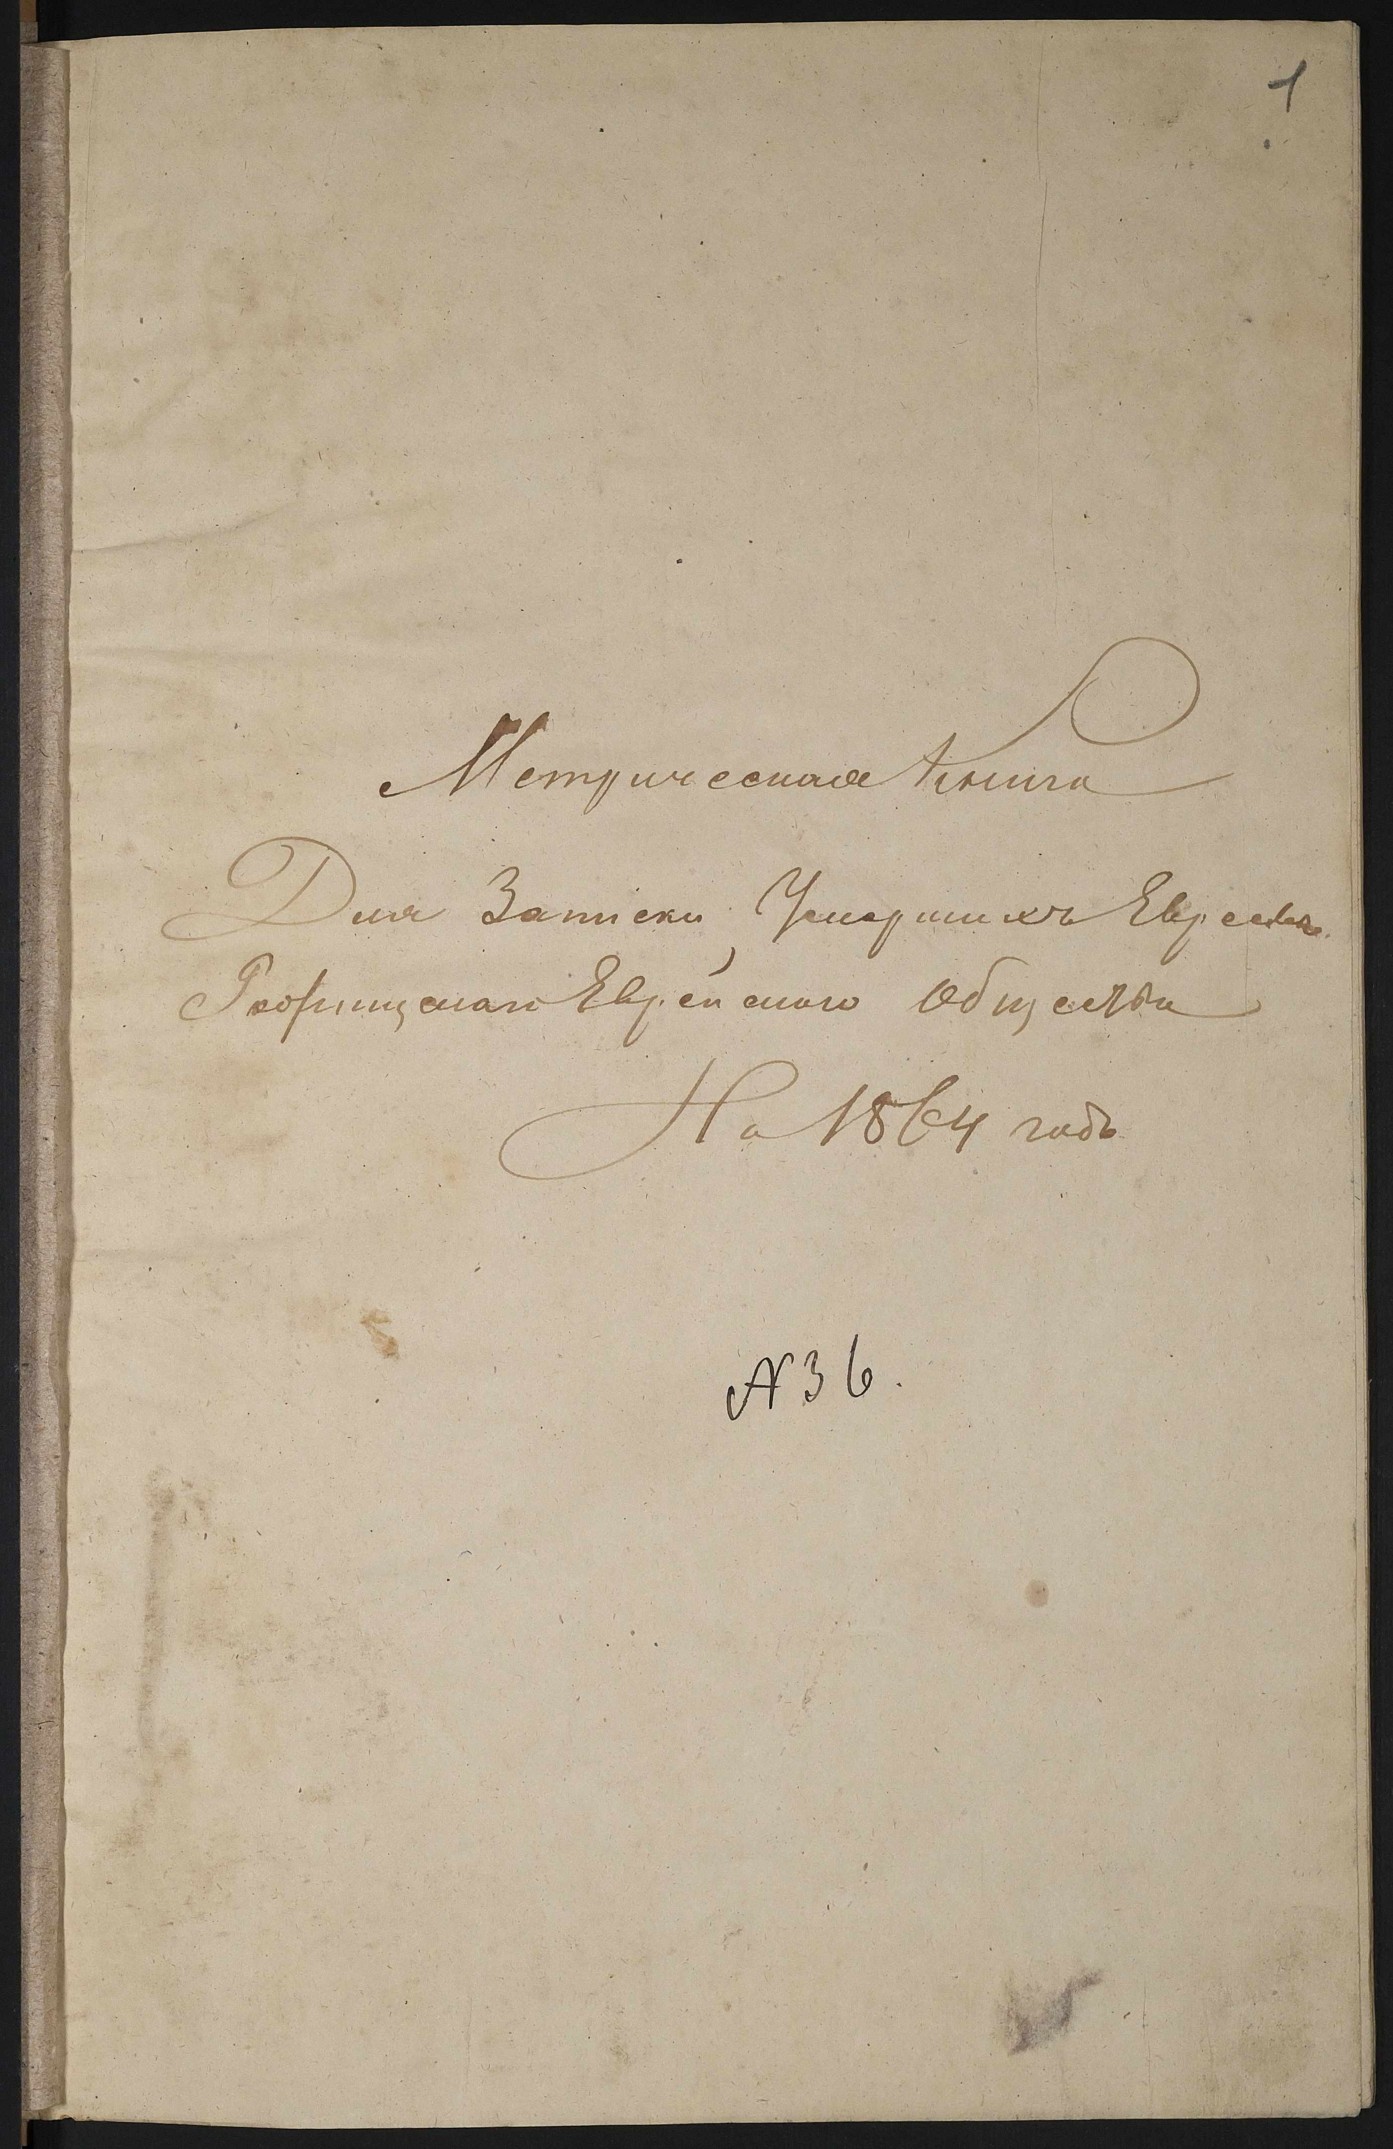 1
Метрическая Книга
Для Записки Умершихъ Евреевъ
Еврейскаго Общества
На 1864 годъ
№ 36.